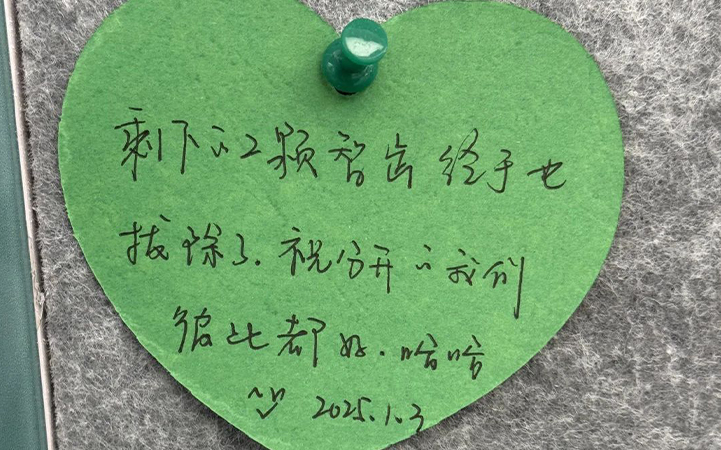 剩下的2颗智齿终于也
拔除了.祝分开的我们
彼此都好.哈哈
2025.1.3